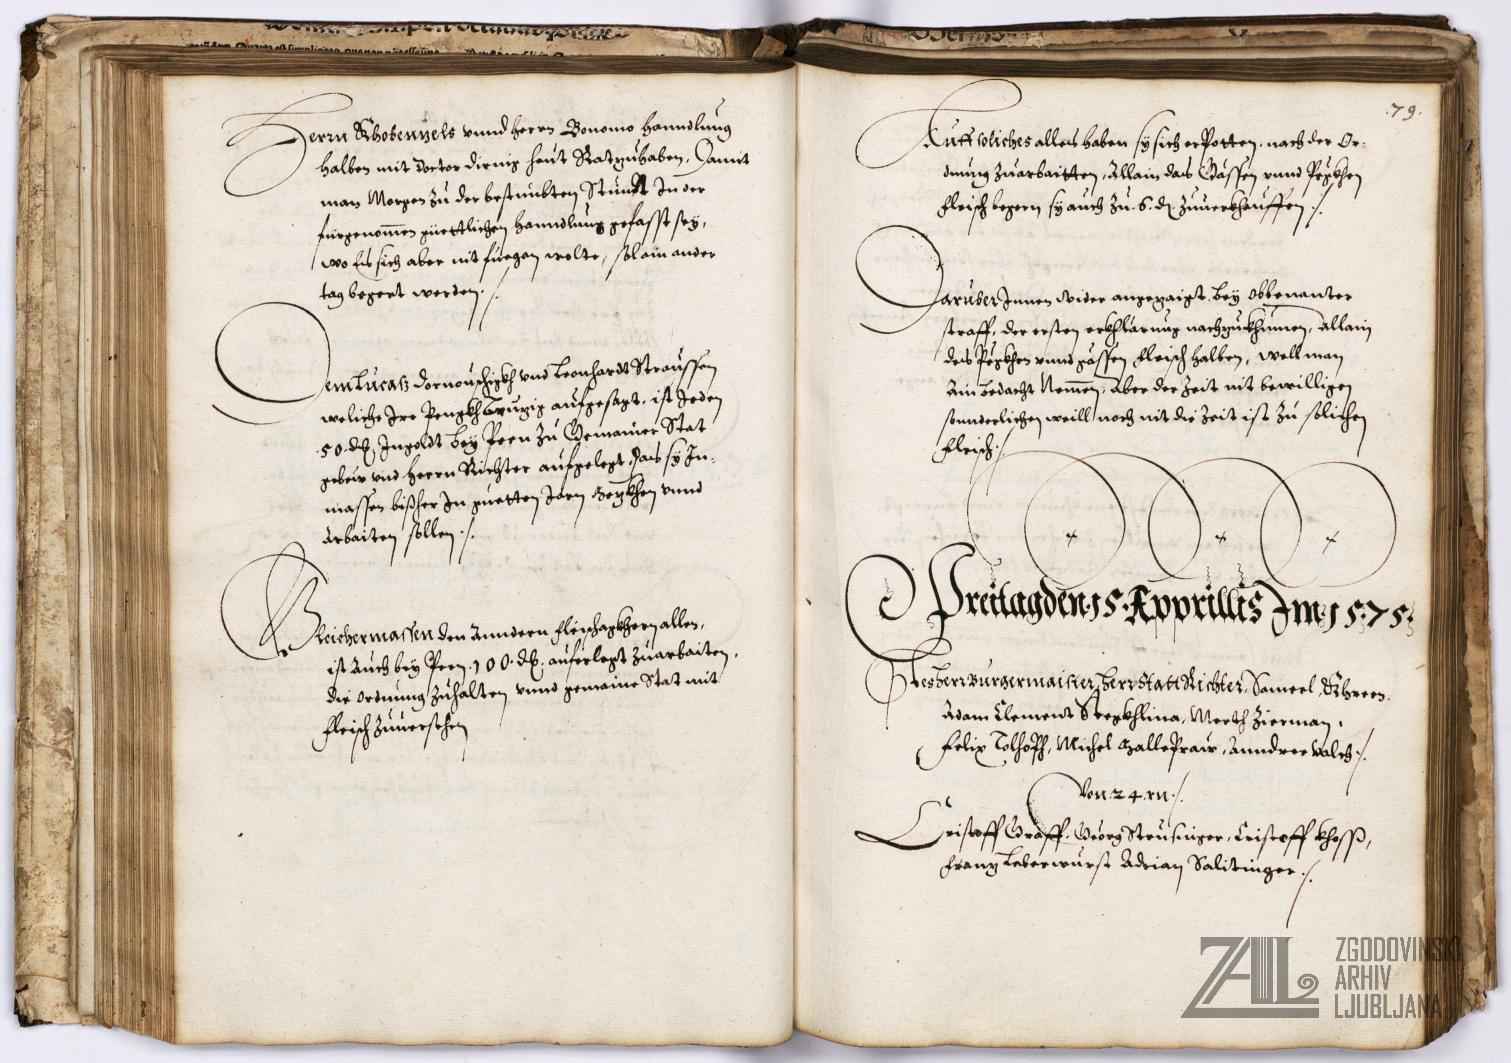 Herrn Khobentzels vnnd herrn Bonomo hanndlung
halben mit doctor dirnig heut Rat zuhaben, Damit
man Morgen zu der bestimbten Stundt In der
fürgenomen güettlichen hanndlung gefasst sey,
wo Es sich aber nit fuegen wolte, sol ain ander
tag begert werden ./.
Dem Lucasz vnd Leonhardt Straussen
weliche Ire aufgesagt, ist Jeden
50 Ingoldt bey Peen zu Gemainer Stat
gebew vnd herrn Richter aufgelegt, Das sy In-
massen bissher In guetten Iren vnnd
Arbaiten sollen ./.
Gleichermassen den Anndern fleischagkhern allen,
ist Auch bey Peen 100 auferlegt zuarbaiten,
die ordnung zuhalten vnnd gemaine Stat mit
fleisch zuuersehen
.79.
Auff soliches alles haben sy sich erPotten, nach der Or-
dnung zuarbaitten, Allain das Gaissen vnnd Pegkhen
fleisch begern sy auch zu .6. d. zuuerkhauffen ./.
Daruber Innen wider angezaigt, bey obbenanter
straff, der ersten erkhlärung nachzukhumen, allain
des Pegkhen vnnd gaissen fleisch halben, well man
Ain bedacht Nemen, Aber der Zeit nit bewilligen
sonnderlichen weill noch nit die Zeit ist zu solichen
fleisch ./.
Freitag den 15 Apprillis Im 1575
herr Burgermaister, herr Stat Richter, Sameel, Khreen
Adam Clement Stegkhlina, Merth Zierman,
Felix Tolhopf, Michel Anndree Valch ./.
Von .24. rn ./.
Cristoff Graff, Georg Cristoff Khoss,
Frantz Leberwurst Adrian Salitinger ./.
ZAL
ZGODOVINSKI
ARHIV
LJUBLJANA